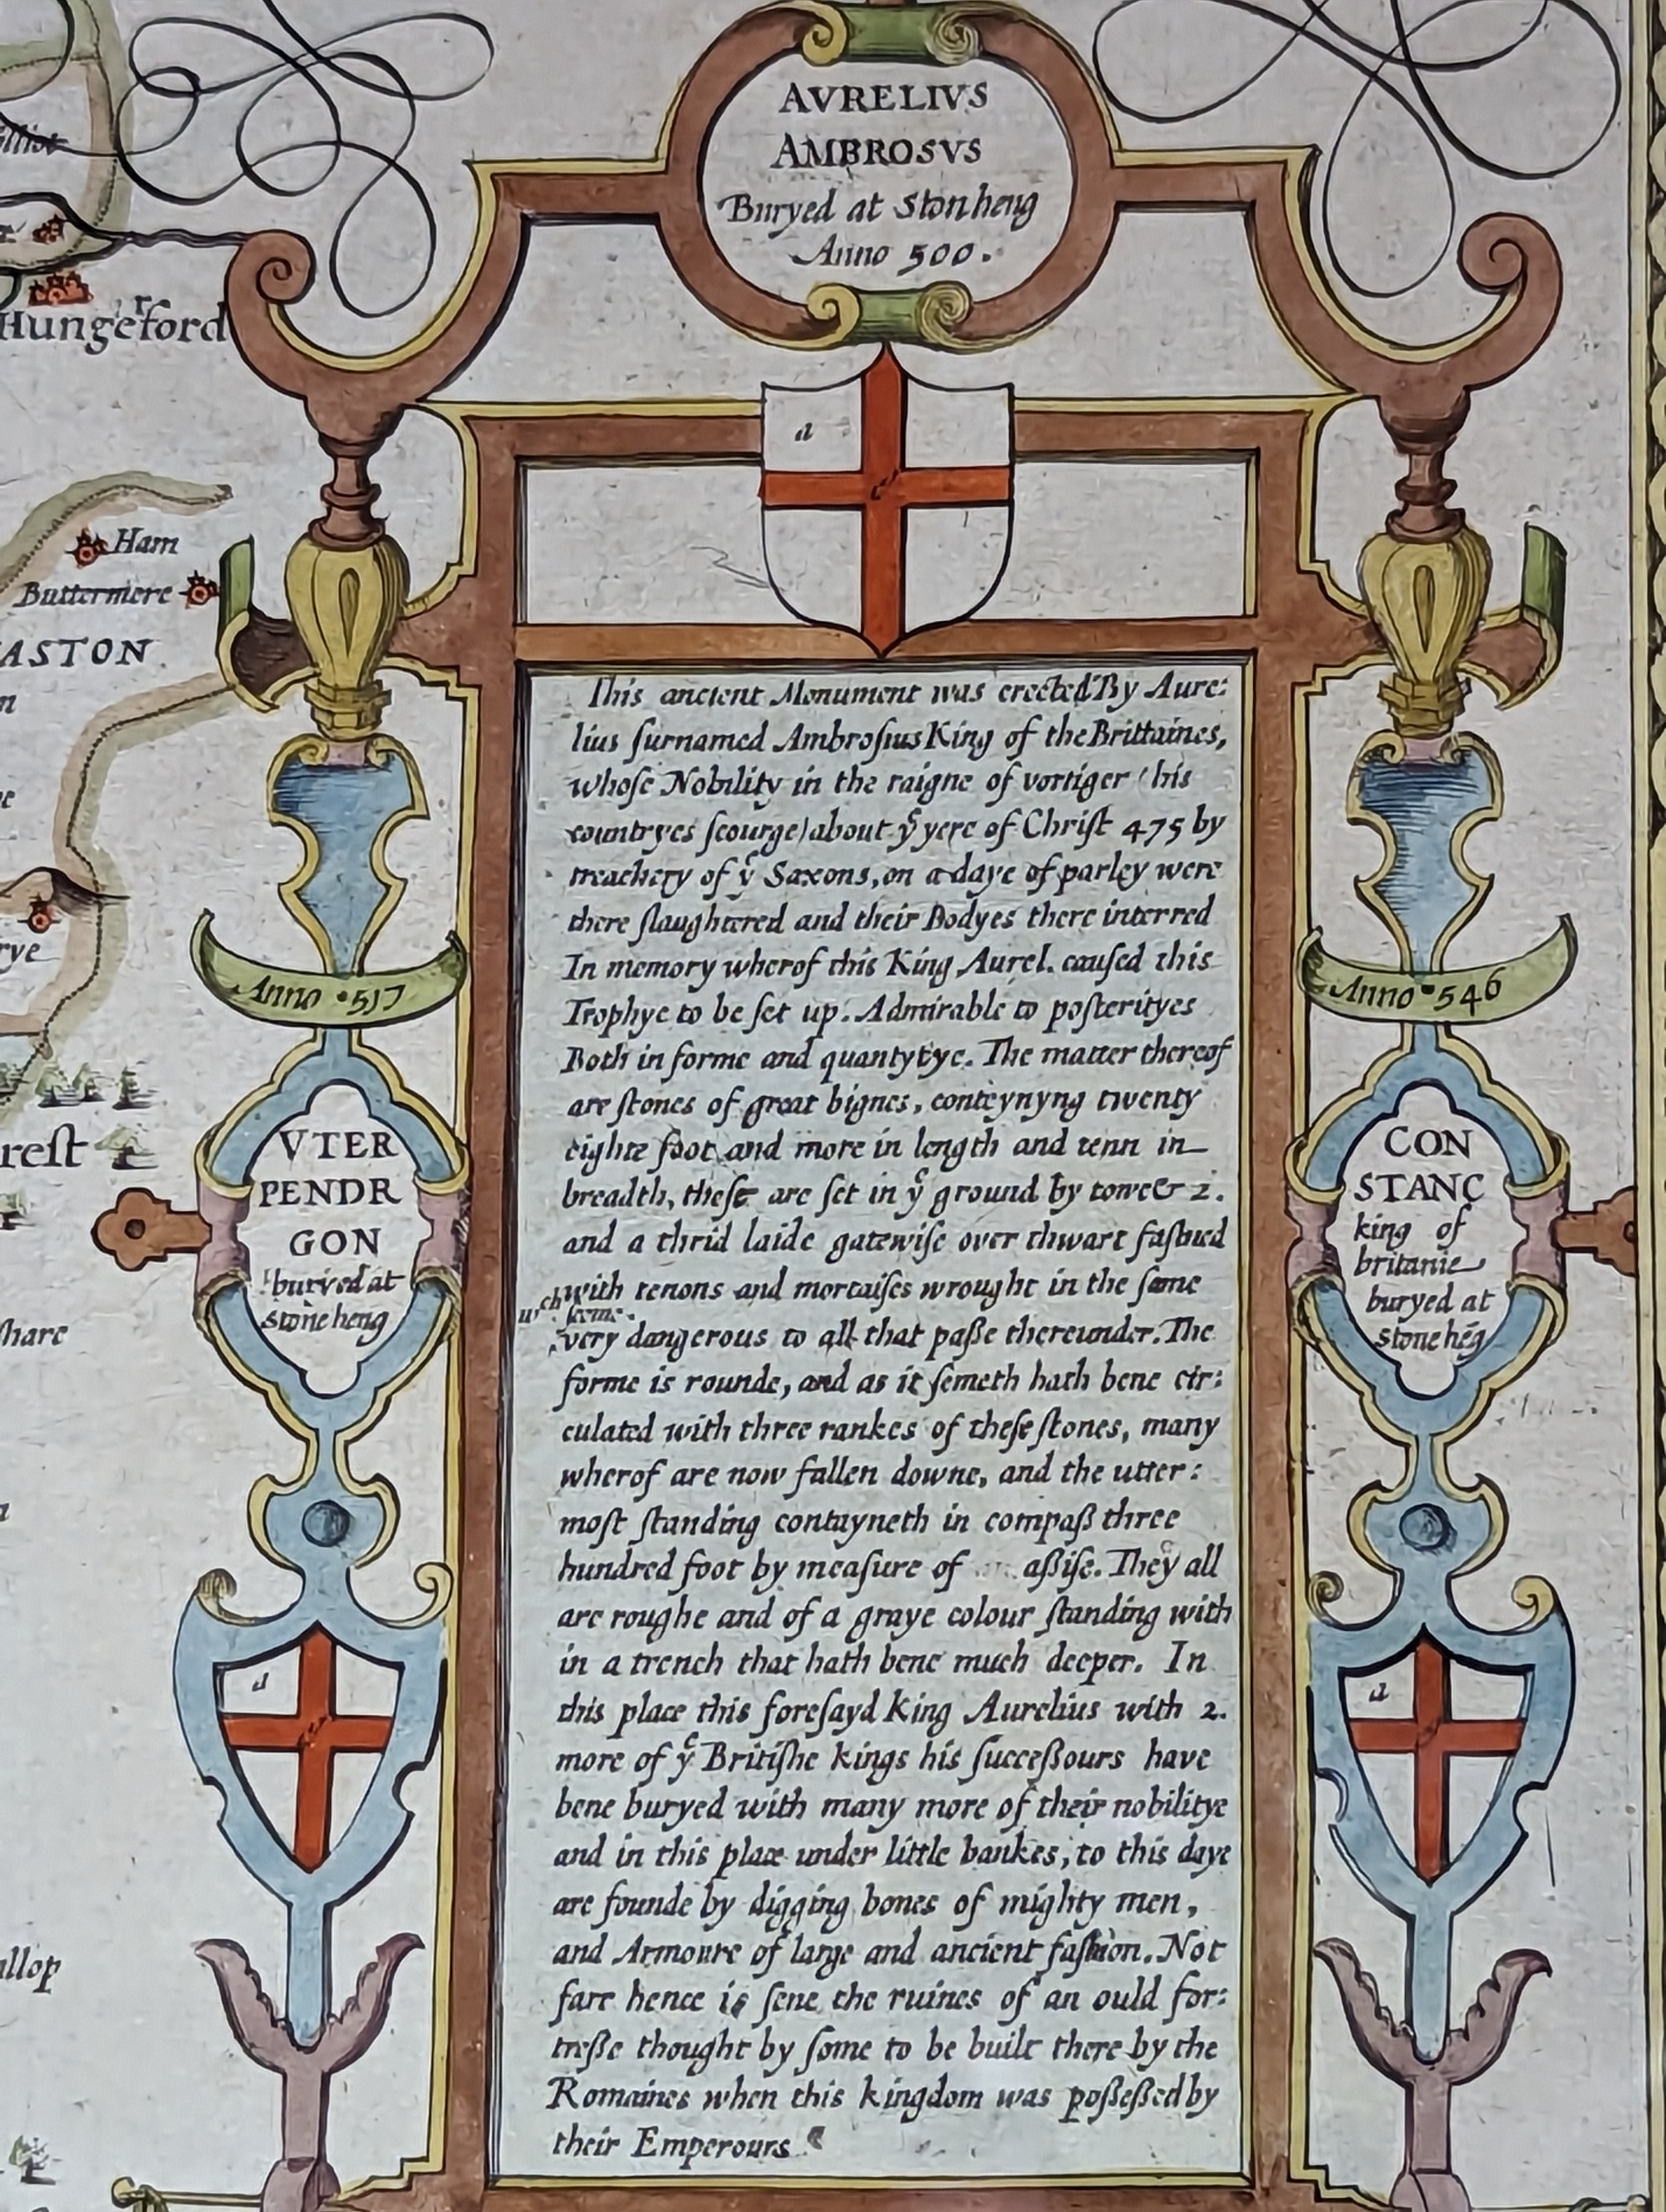 AVRELIVS
AMBROSVS
Buryed at Stonheng
Anno 500.
Hungerford
a
Ham
Buttermere
ASTON
This ancient Monument was erected By Aure:
lius ſurnamed Ambroſius King of the Brittaines,
whoſe Nobility in the raigne of vortiger (his
countryes ſcourge) about yͤ yere of Chriſt 475 by
treachery of yͤ Saxons, on a daye of parley were
there ſlaughtered and their Bodyes there interred
In memory wherof this King Aurel. cauſed this
Trophye to be ſet up. Admirable to poſterityes
Both in forme and quantytye. The matter thereof
are ſtones of great bignes, conteynyng twenty
eighte foot and more in length and tenn in
breadth, theſe are ſet in yͤ ground by towe & 2.
and a thrid laide gatewiſe over thwart faſtned
with tenons and mortaiſes wrought in the ſame
wᶜʰ ſeeme
very dangerous to all that paße thereunder. The
forme is rounde, and as it ſemeth hath bene cir:
culated with three rankes of theſe ſtones, many
wherof are now fallen downe, and the utter:
moſt ſtanding contayneth in compaß three
hundred foot by meaſure of aßiſe. They all
are roughe and of a graye colour ſtanding with
in a trench that hath bene much deeper. In
this place this foreſayd King Aurelius with 2.
more of yͤ Britiſhe kings his ſucceßours have
bene buryed with many more of their nobilitye
and in this place under little bankes, to this daye
are founde by digging bones of mighty men,
and Armoure of large and ancient faſhion. Not
farr hence is ſene the ruines of an ould for:
treße thought by ſome to be built there by the
Romaines when this kingdom was poßeßed by
their Emperours
Anno 517
VTER
PENDR
GON
buryed at
stone heng
a
Anno 546
CON
STANC
king of
britanie
buryed at
stone hēg
a
reſt